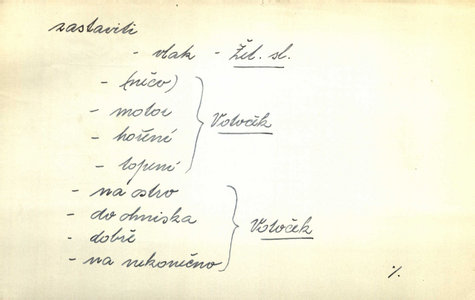 zastaviti
- vlak - Žel. sl.
- (něco)
- motor
- hoření
- topení
Votoček
- na ostro
- do ohniska
- dobře
- na nekonečno
Votoček
·/.